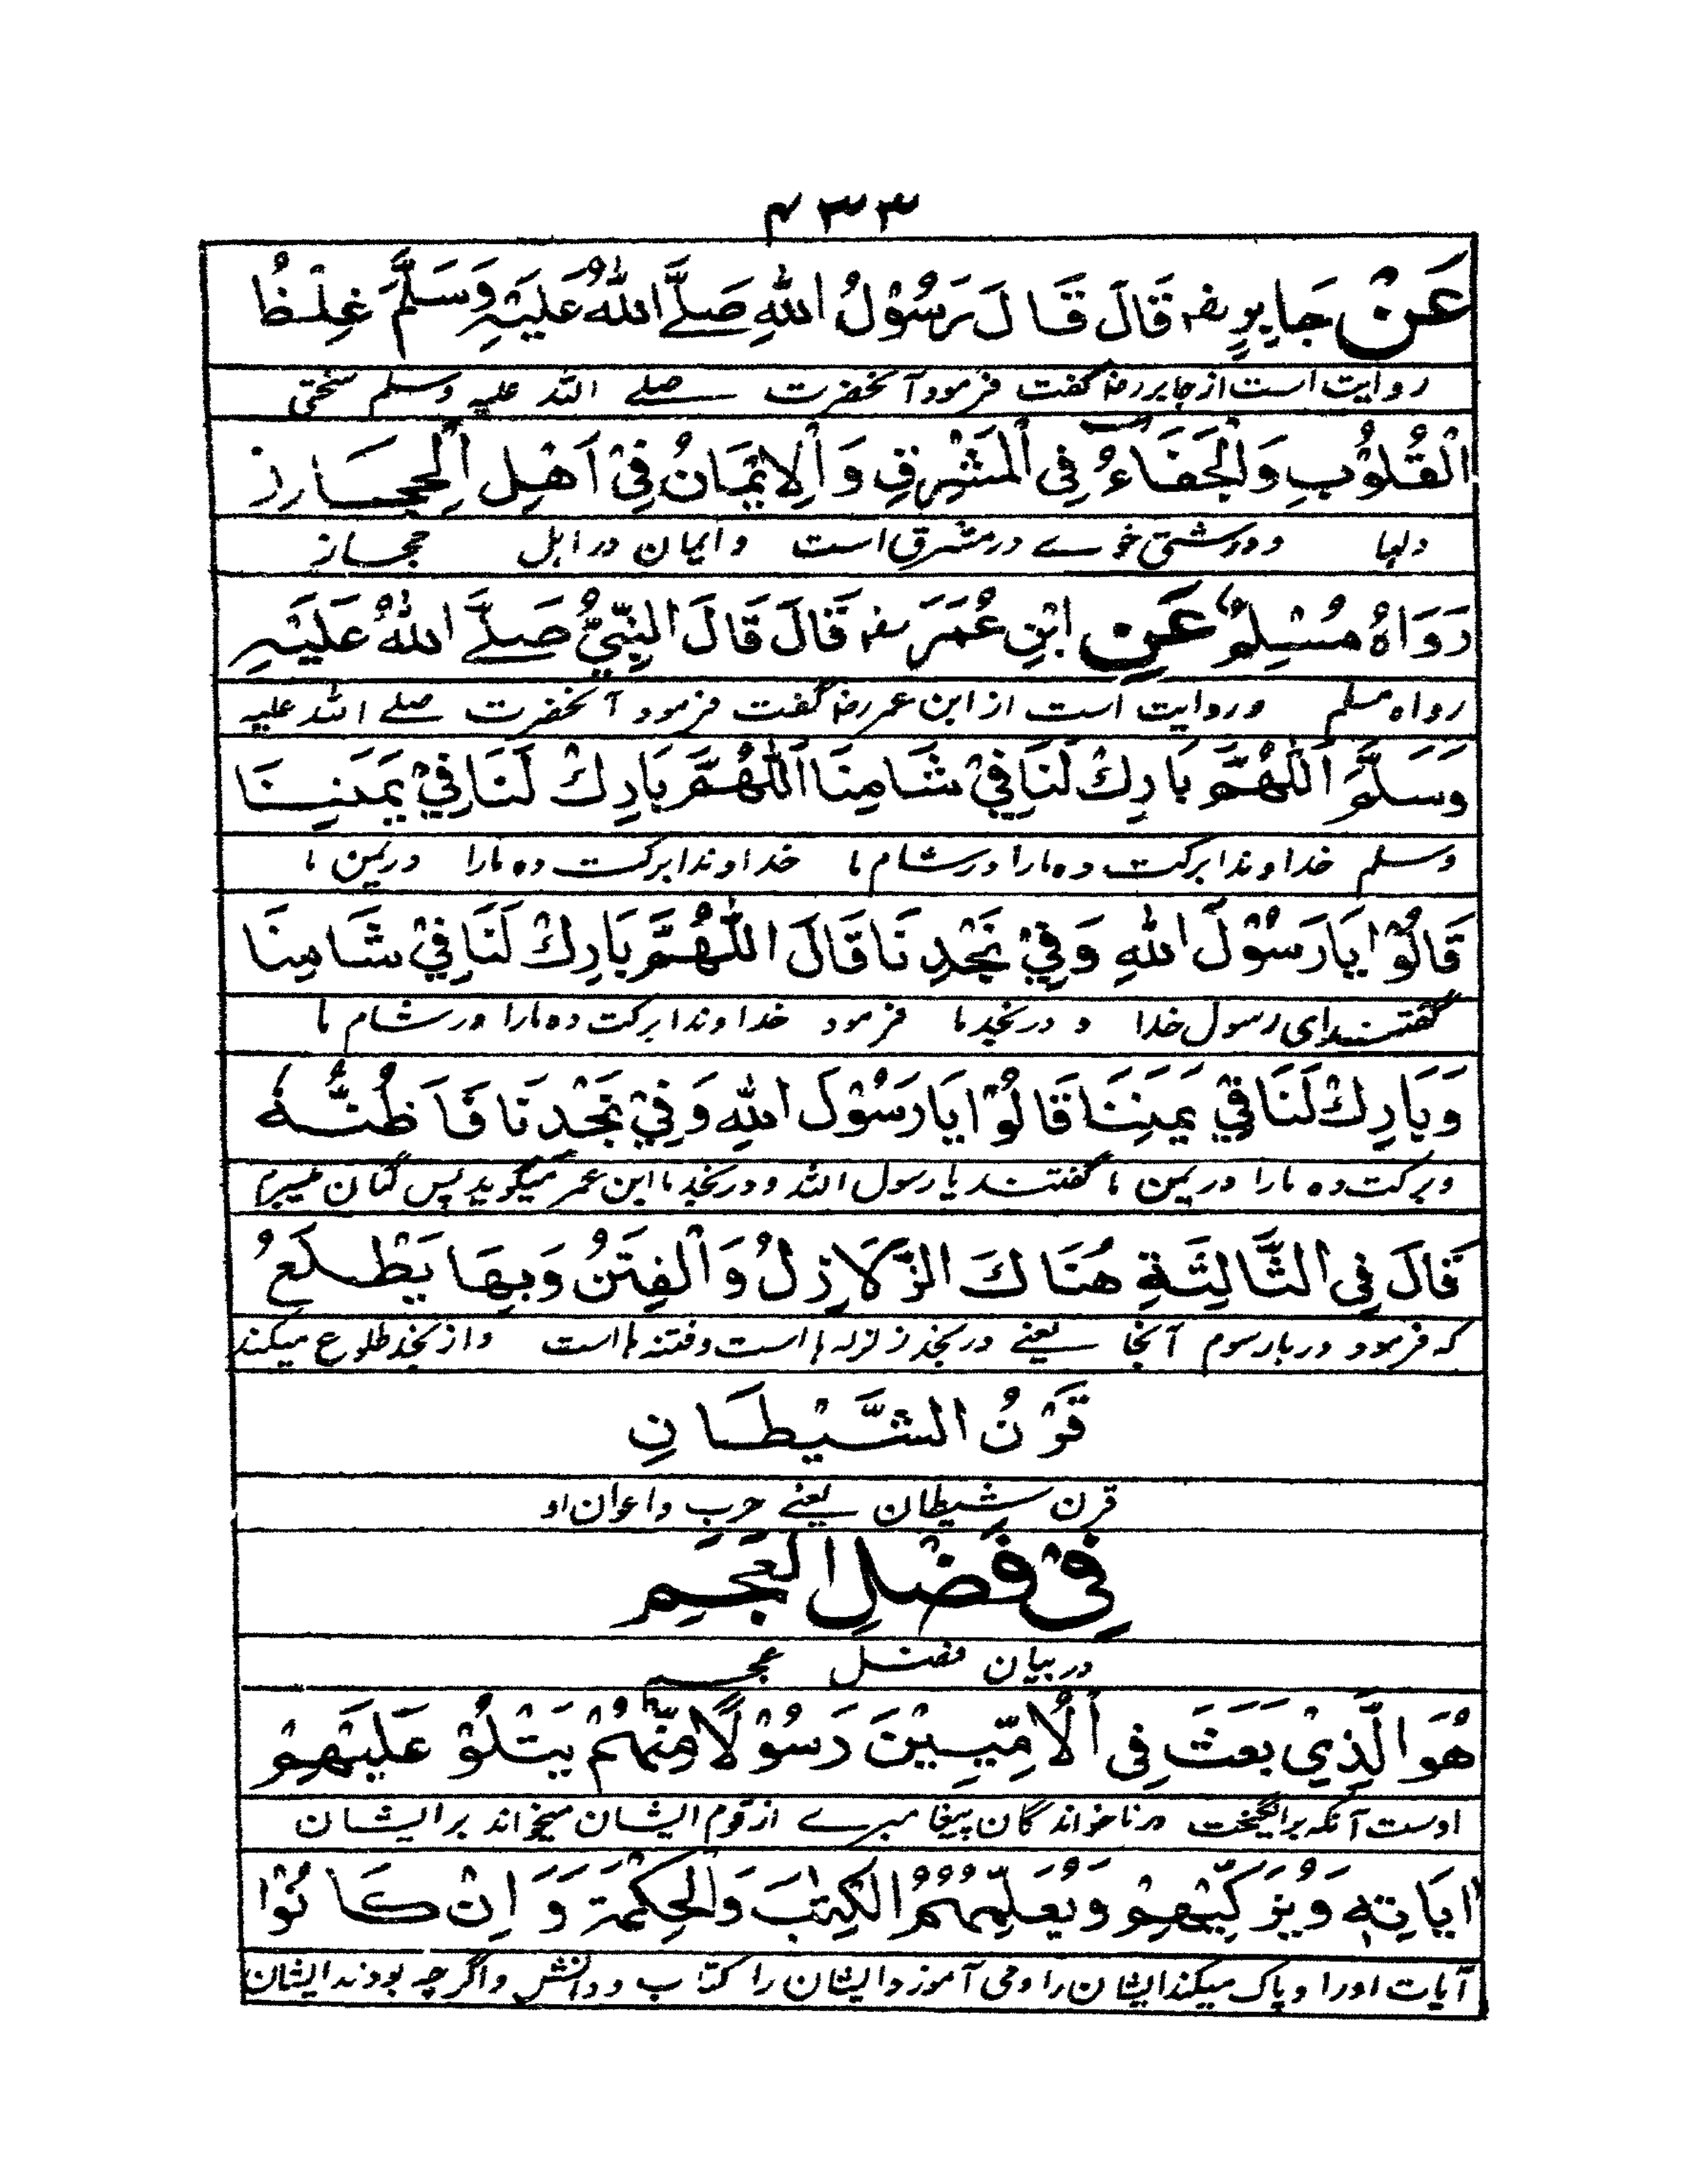 ۴۳۳
عَنْ جَابِرٍ رض قَالَ قَالَ رَسُوْلُ اللهِ صَلَّے اللهُ عَلَيْهِ وَسَلَّمَ غِلْظُ
روایت است از جابر رض گفت فرمود آنحضرت صلے اللہ علیہ وسلم سختی
الْقُلُوْبِ وَالْجَفَاءُ فِي الْمَشْرِقِ وَالْاِيْمَانُ فِيْ اَهْلِ الْحِجَازِ
دلہا و درشتی خوے در مشرق است و ایمان در اہل حجاز
رَوَاهُ مُسْلِمٌ عَنِ ابْنِ عُمَرَ رض قَالَ قَالَ النَّبِيُّ صَلَّے اللهُ عَلَيْهِ
رواہ مسلم و روایت است از ابن عمر رض گفت فرمود آنحضرت صلے اللہ علیہ
وَسَلَّمَ اَللّٰهُمَّ بَارِكْ لَنَا فِيْ شَامِنَا اَللّٰهُمَّ بَارِكْ لَنَا فِيْ يَمَنِنَا
وسلم خداوندا برکت دہ مارا در شام ما خداوندا برکت دہ مارا در یمن ما
قَالُوْا يَا رَسُوْلَ اللهِ وَفِيْ نَجْدِنَا قَالَ اللّٰهُمَّ بَارِكْ لَنَا فِيْ شَامِنَا
گفتند ای رسول خدا و در نجد ما فرمود خداوندا برکت دہ مارا در شام ما
وَبَارِكْ لَنَا فِيْ يَمَنِنَا قَالُوْا يَا رَسُوْلَ اللهِ وَفِيْ نَجْدِنَا فَاَظُنُّهٗ
و برکت دہ مارا در یمن ما گفتند یا رسول اللہ و در نجد ما ابن عمر میگوید پس گمان میبرم
قَالَ فِي الثَّالِثَةِ هُنَاكَ الزَّلَازِلُ وَالْفِتَنُ وَبِهَا يَطْلَعُ
کہ فرمود در بار سوم آنجا یعنے در نجد زلزلہ ہا است و فتنہ ہا است و از نجد طلوع میکند
قَرْنُ الشَّيْطَانِ
قرن شیطان یعنے حزب و اعوان او
فِيْ فَضْلِ الْعَجَمِ
در بیان فضل عجم
هُوَ الَّذِيْ بَعَثَ فِي الْاُمِّيِّيْنَ رَسُوْلًا مِّنْهُمْ يَتْلُوْ عَلَيْهِمْ
اوست آنکہ برانگیخت در ناخواندگان پیغامبرے از قوم ایشان میخواند بر ایشان
اٰيَاتِهٖ وَيُزَكِّيْهِمْ وَيُعَلِّمُهُمُ الْكِتٰبَ وَالْحِكْمَةَ وَاِنْ كَانُوْا
آیات اورا و پاک میکند ایشان را و می آموزد ایشان را کتاب و دانش و اگرچہ بودند ایشان